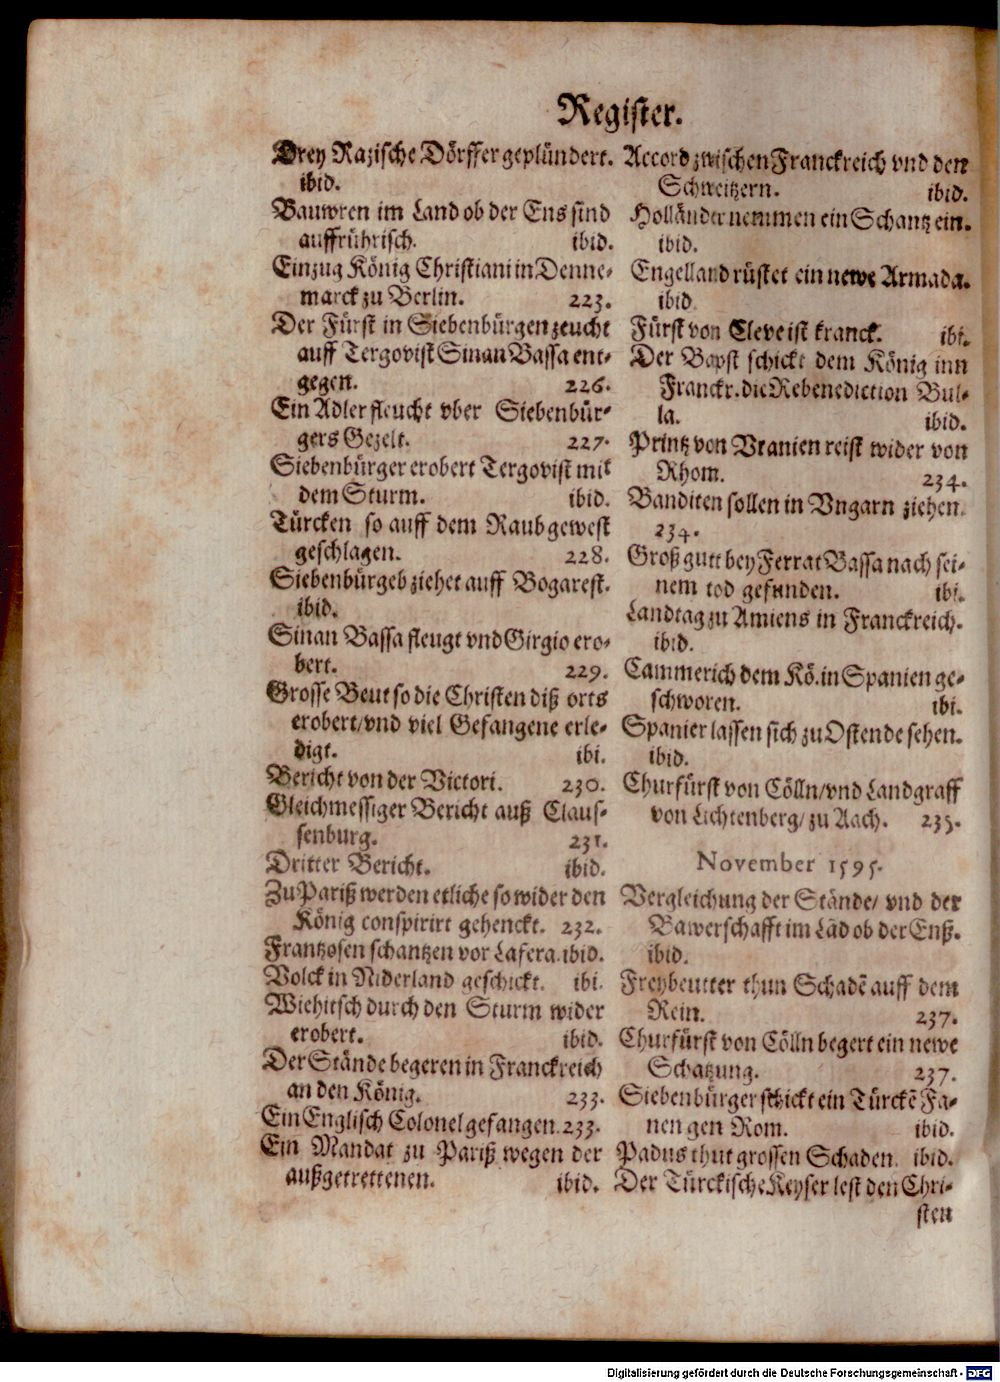 Register.
Drey Razische Dörffer geplündert.
ibid.
Bauwren im Land ob der Ens sind
auffrührisch. ibid.
Einzug König Christiani in Denne-
marck zu Berlin. 223.
Der Fürst in Siebenbürgen zeucht
auff Tergovist Sinan Bassa ent-
gegen. 226.
Ein Adler fleucht vber Siebenbür-
gers Gezelt. 227.
Siebenbürger erobert Tergovist mit
dem Sturm. ibid.
Türcken so auff dem Raub gewest
geschlagen. 228.
Siebenbürgeb ziehet auff Bogarest.
ibid.
Sinan Bassa fleugt vnd Girgio ero-
bert. 229.
Grosse Beut so die Christen diß orts
erobert/vnd viel Gefangene erle-
digt. ibi.
Bericht von der Victori. 230.
Gleichmessiger Bericht auß Claus-
senburg. 231.
Dritter Bericht. ibid.
Zu Pariß werden etliche so wider den
König conspirirt gehenckt. 232.
Frantzosen schantzen vor Lafera. ibid.
Volck in Niderland geschickt. ibi.
Wiehitsch durch den Sturm wider
erobert. ibid.
Der Stände begeren in Franckreich
an den König. 233.
Ein Englisch Colonel gefangen. 233.
Ein Mandat zu Pariß wegen der
außgetrettenen. ibid.
Accord zwischen Franckreich vnd den
Schweitzern. ibid.
Holländer nemmen ein Schantz ein.
ibid.
Engelland rüstet ein newe Armada.
ibid.
Fürst von Cleve ist kranck. ibi.
Der Bapst schickt dem König inn
Franckr. die Rebenediction Bul-
la. ibid.
Printz von Vranien reist wider von
Rhom. 234.
Banditen sollen in Vngarn ziehen.
234.
Groß gutt bey Ferrat Bassa nach sei-
nem tod gefunden. ibi.
Landtag zu Amiens in Franckreich.
ibid.
Cammerich dem Kö. in Spanien ge-
schworen. ibi.
Spanier lassen sich zu Ostende sehen.
ibid.
Churfürst von Cölln/vnd Landgraff
von Lichtenberg/ zu Aach. 235.
November 1595.
Vergleichung der Stände/ vnd der
Bawerschafft im Lãd ob der Enß.
ibid.
Freybeutter thun Schadẽ auff dem
Rein. 237.
Churfürst von Cölln begert ein newe
Schatzung. 237.
Siebenbürger schickt ein Türckẽ Fa-
nen gen Rom. ibid.
Padus thut grossen Schaden. ibid.
Der Türckische Keyser lest den Chri-
sten
Digitalisierung gefördert durch die Deutsche Forschungsgemeinschaft - DFG